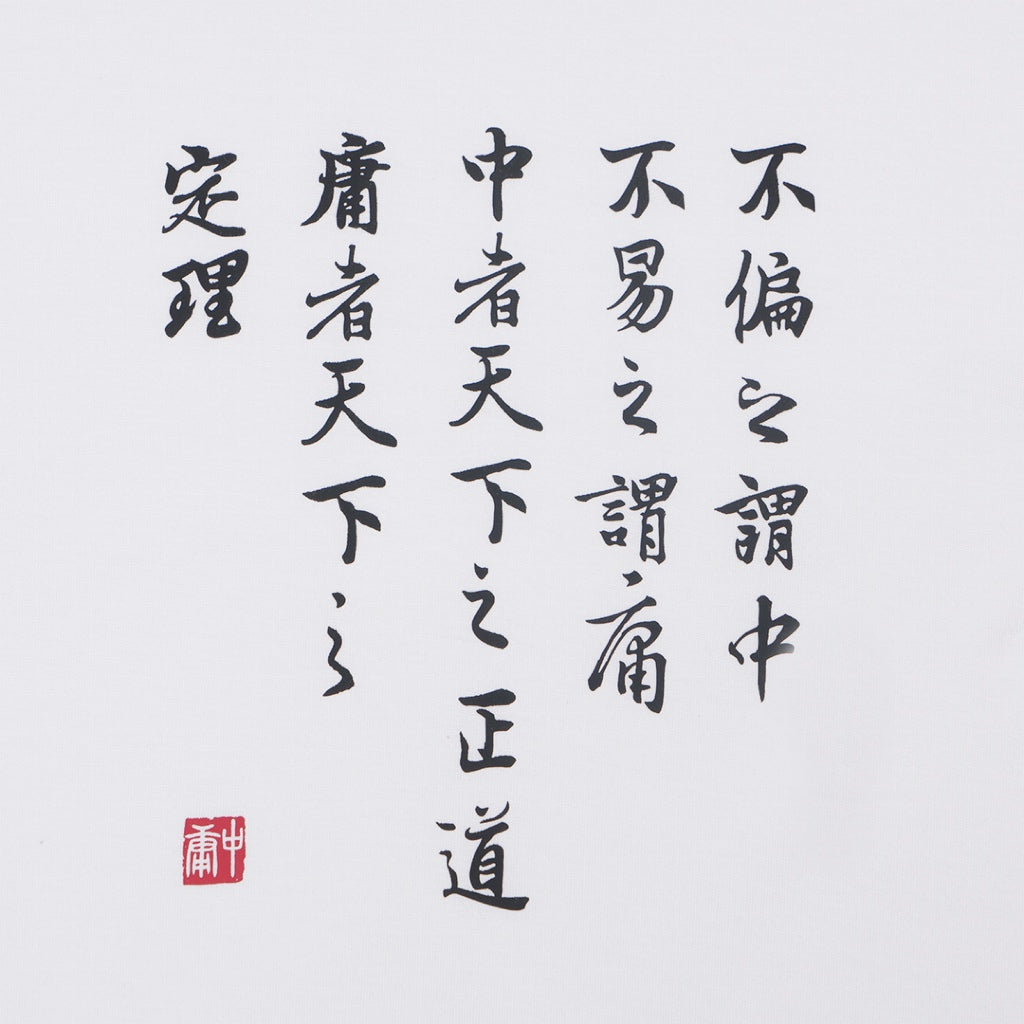 不偏之謂中
不易之謂庸
中者天下之正道
庸者天下之
定理
中庸